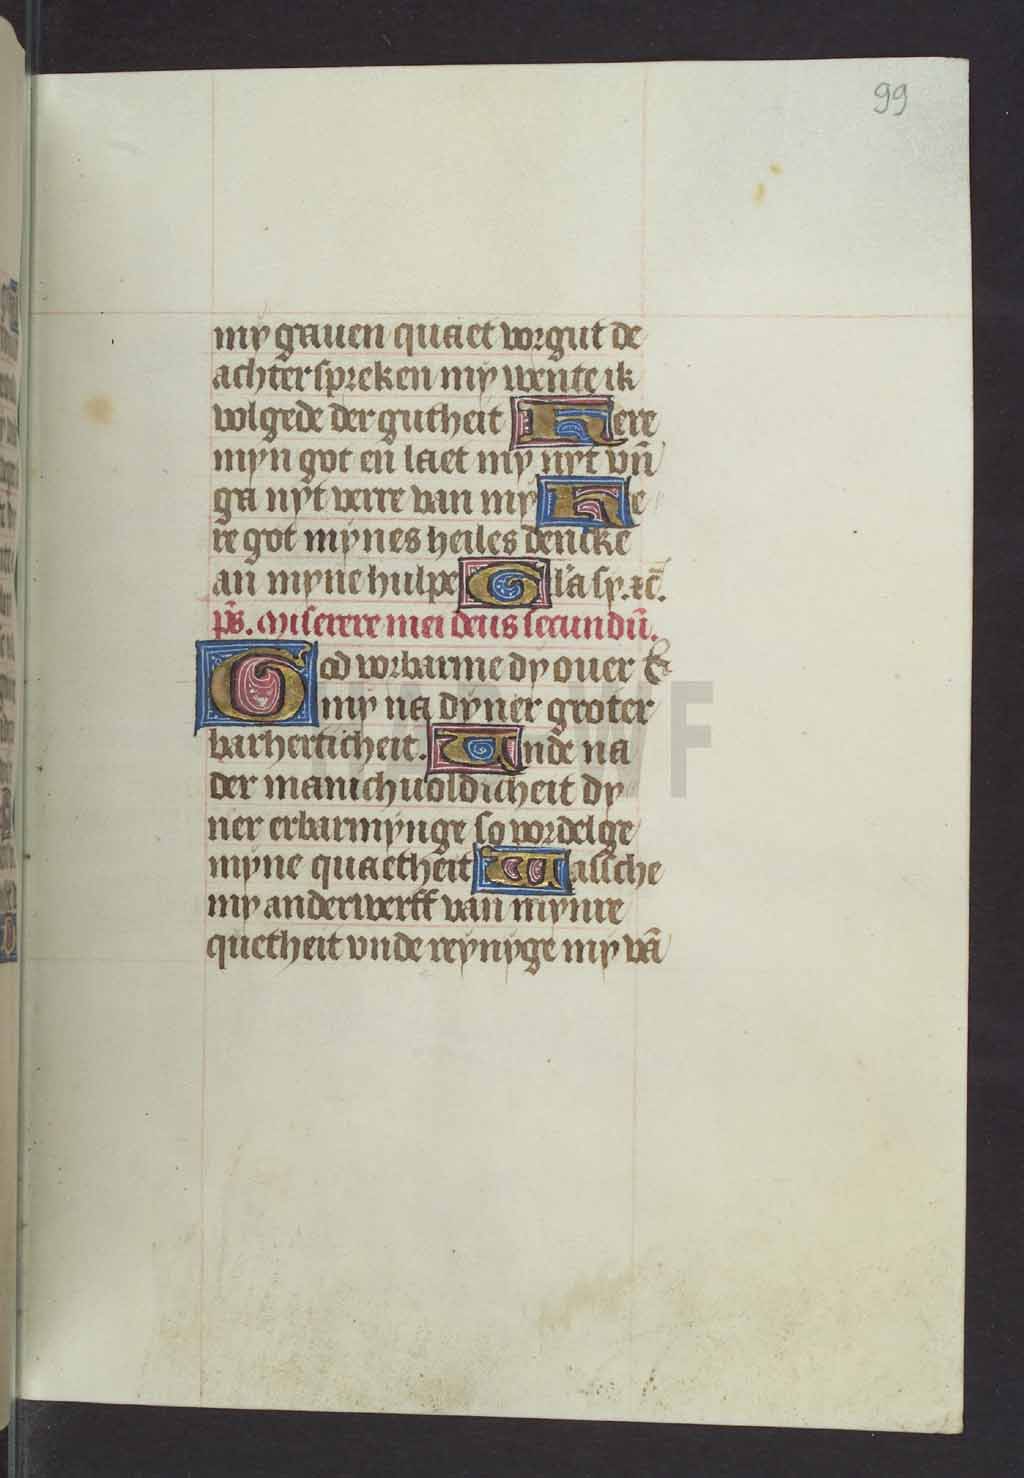 99
my gauen quaet vorgut de
achterspreken my wente ik
volgede der gutheit Here
myn got en laet my nyt vn̄
ga nyt verre van my He
re got mynes heiles dencke
an myne hulpe Gl'a sy. ꝛc̄.
ps̄. Miserere mei deus secundū.
God vorbarme dy ouer
my na dyner groter
barherticheit. Unde na
der manichuoldicheit dy
ner erbarmynge so vordelge
myne quaetheit Wassche
my anderwerff van mynre
quetheit vnde reynyge my vā